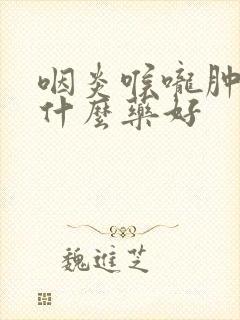 咽炎喉嚨肿
什麼藥好
魏進芝